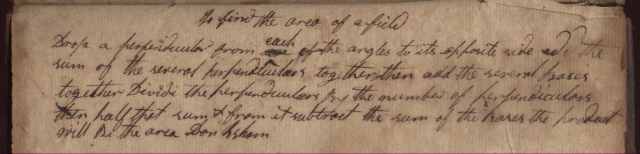 to find the area of a field
Drop a perpendicular from each of the angles to its opposite side add the
sum of the several perpendiculars together then add the several bases
together Divide the perpendiculars By the number of perpendiculars
then half that sum & from it subtract the sum of the bases the product
will Be the area Don